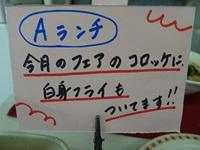 Aランチ
今月のフェアのコロッケに、
白身フライも
ついてます!!